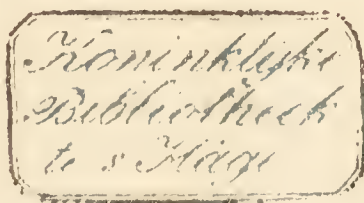 Koninklijke
Bibliotheek
te s Hage